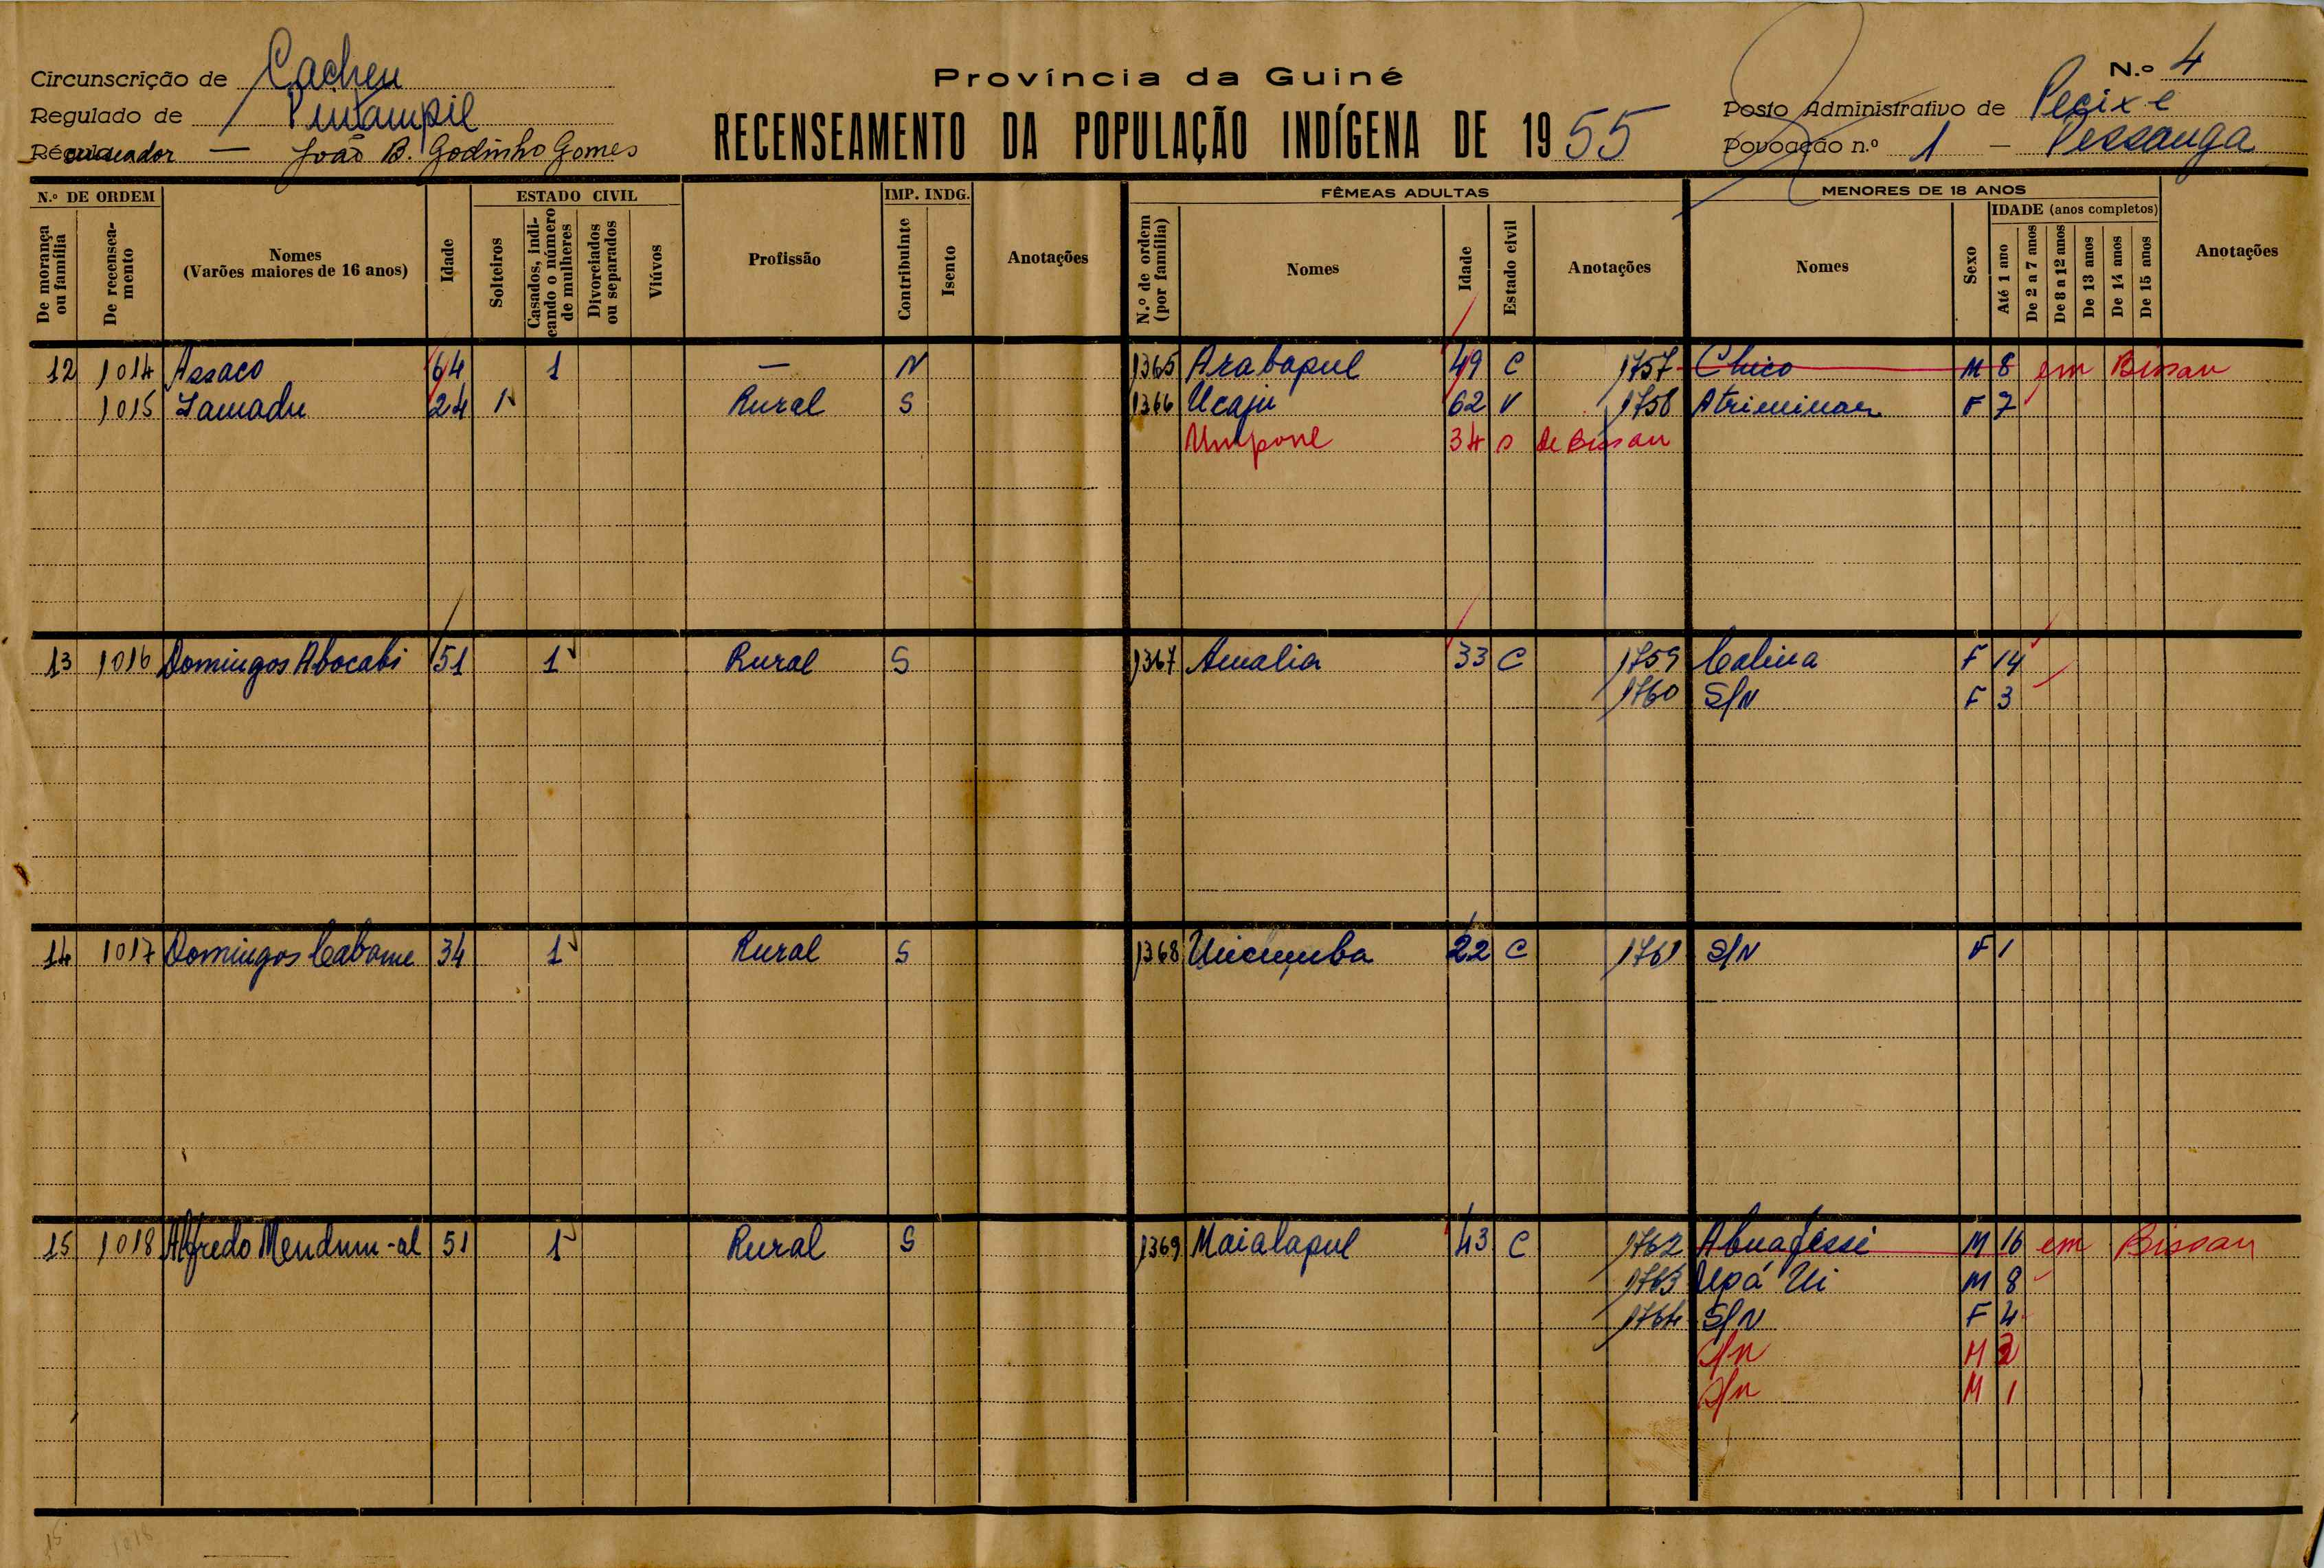 Circunscrição de Cacheu
Regulado de Pintampil
Recenseador — João B. Godinho Gomes
Província da Guiné
RECENSEAMENTO DA POPULAÇÃO INDÍGENA DE 1955
N.º 4
Posto Administrativo de Pecixe
Povoação n.º 1 — Pessanga
N.º DE ORDEM
De morança ou família
De recenseamento
Nomes
(Varões maiores de 16 anos)
Idade
ESTADO CIVIL
Solteiros
Casados, indicando o número de mulheres
Divorciados ou separados
Viúvos
Profissão
IMP. INDG.
Contribuinte
Isento
Anotações
FÊMEAS ADULTAS
N.º de ordem (por família)
Nomes
Idade
Estado civil
Anotações
MENORES DE 18 ANOS
Nomes
Sexo
IDADE (anos completos)
Até 1 ano
De 2 a 7 anos
De 8 a 12 anos
De 13 anos
De 14 anos
De 15 anos
Anotações
12 1014 Assaco 64 1 — N 1365 Arabapul 49 C 1757 Chico M 8 em Bissau
1015 Lamadu 24 1 Rural S 1366 Ucaju 62 V 1758 Atriminaer F 7
Umpone 34 S de Bissau
13 1016 Domingos Abocabi 51 1 Rural S 1367 Amalia 33 C 1759 Calina F 14
1760 S/N F 3
14 1017 Domingos Cabome 34 1 Rural S 1368 Uicumba 22 C 1761 S/N F 1
15 1018 Alfredo Mendum-al 51 1 Rural S 1369 Maialapul 43 C 1762 Abuafessi M 16 em Bissau
1763 Upá Ui M 8
1764 S/N F 4
S/n M 2
S/n M 1
15 1018